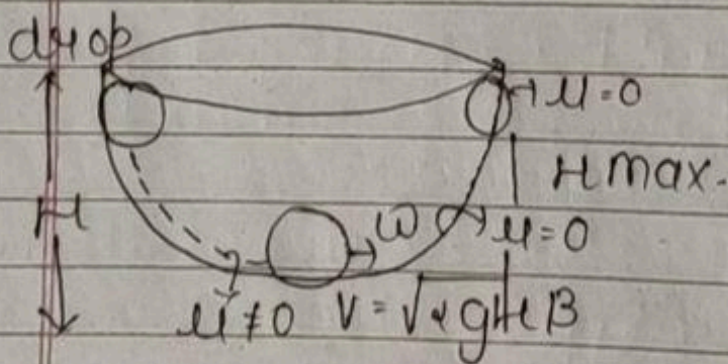 drop
μ=0
H max.
H
ω μ=0
μ≠0 V=√2gH/β